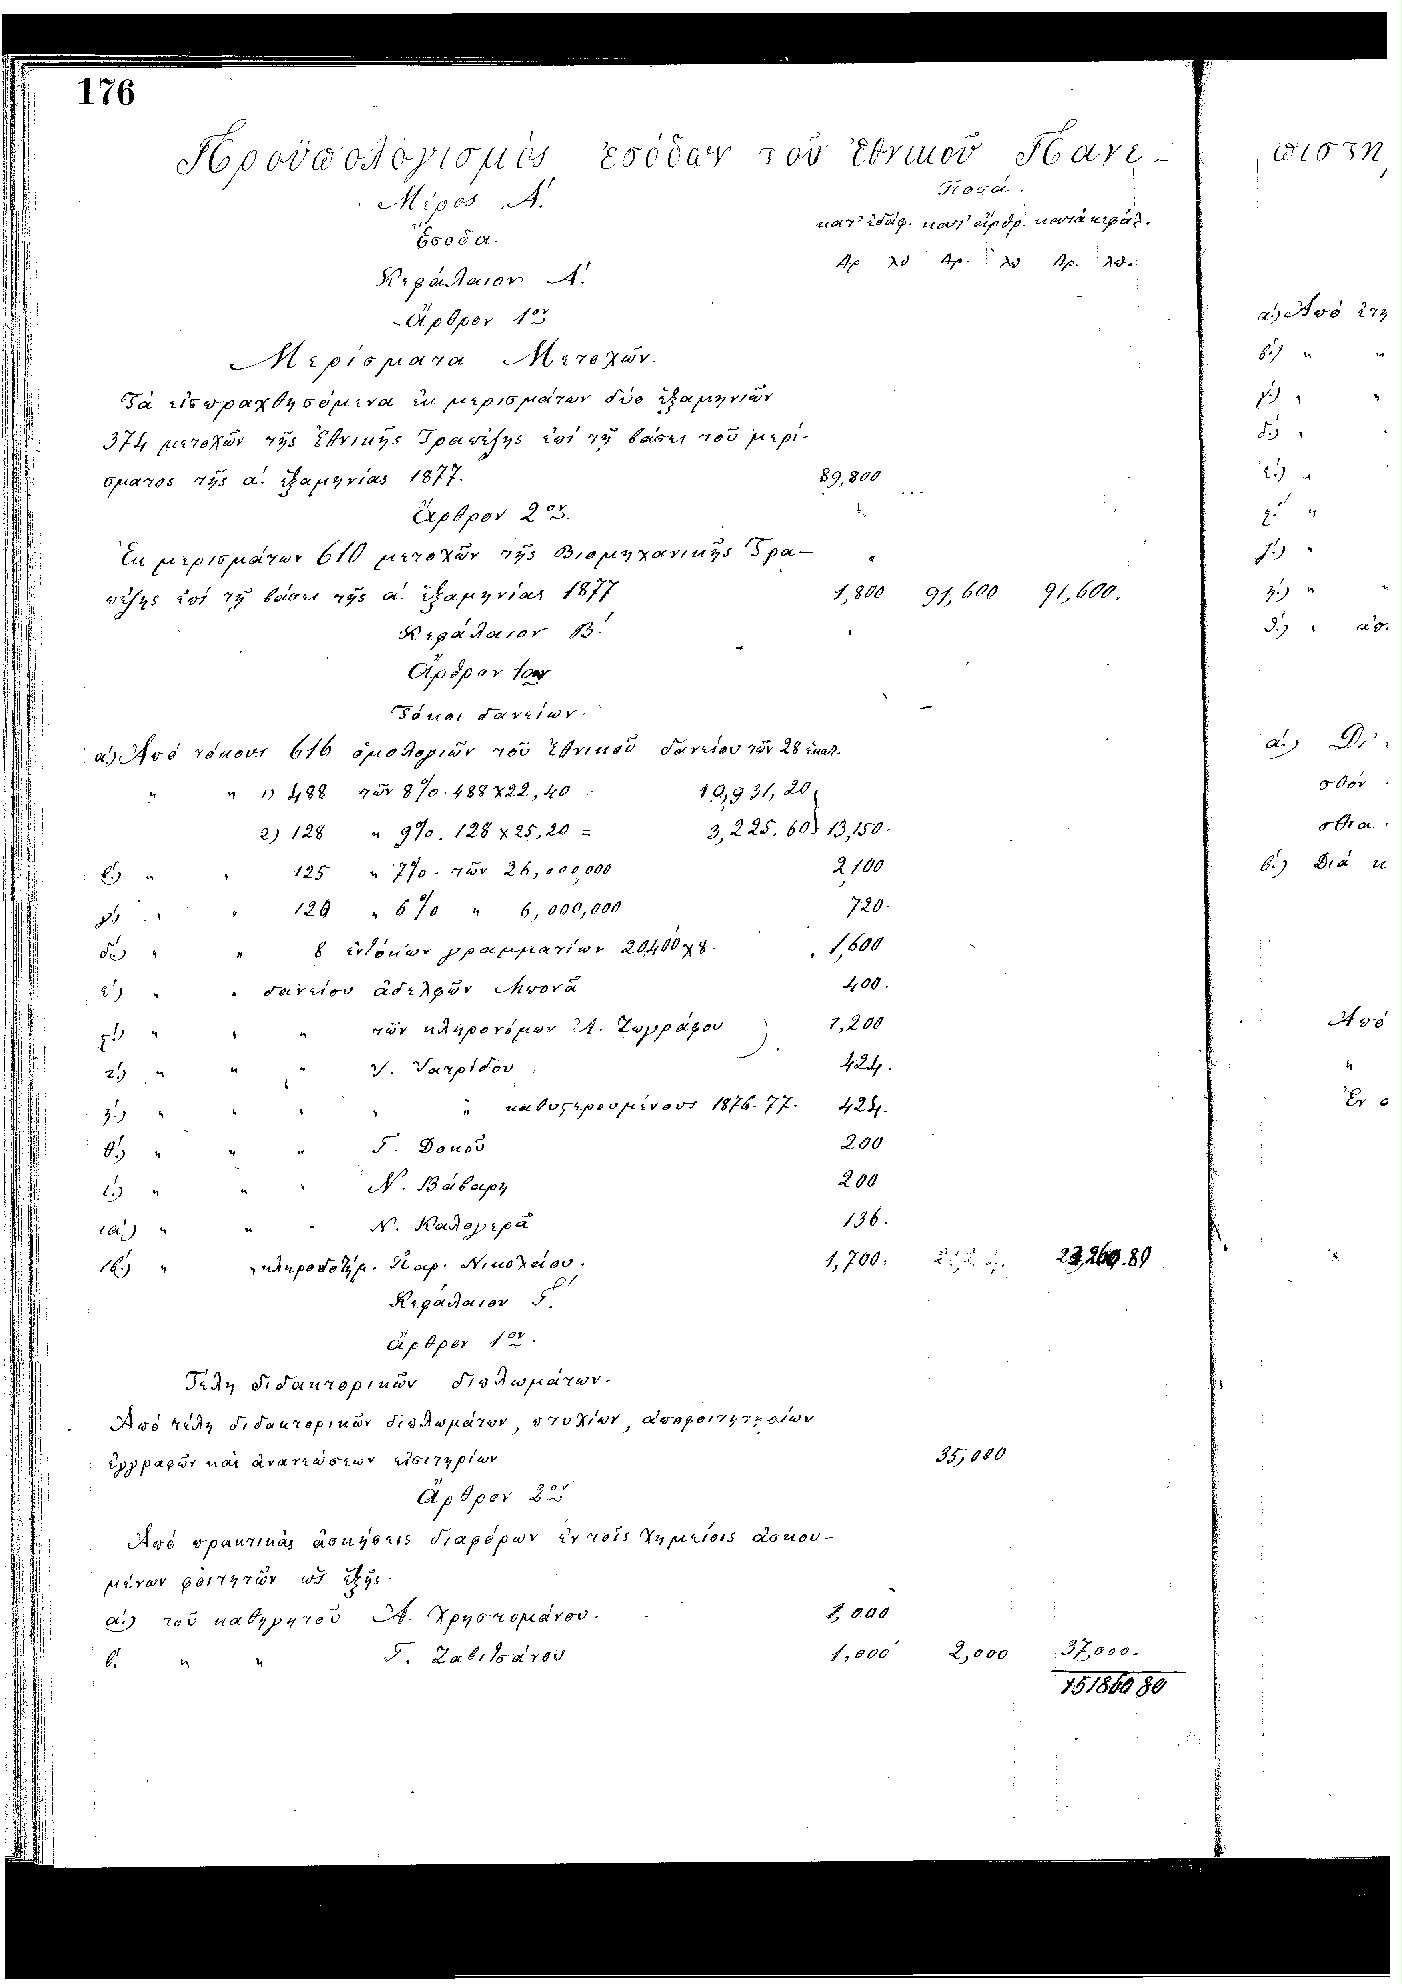 176
Προϋπολογισμός ἐσόδων τοῦ Ἐθνικοῦ Πανε- πιστη
Μέρος Α΄. Ποσά.
Ἔσοδα. κατ' ἐδάφ. κατ' ἄρθρ. κατὰ κεφάλ.
Κεφάλαιον Α΄. Δρ λπ Δρ. λπ Δρ. λπ.
Ἄρθρον 1ον
Μερίσματα Μετοχῶν.
Τά εἰσπραχθησόμενα ἐκ μερισμάτων δύο ἑξαμηνιῶν
374 μετοχῶν τῆς Ἐθνικῆς Τραπέζης ἐπί τῇ βάσει τοῦ μερί-
σματος τῆς α΄. ἑξαμηνίας 1877. 89,800
Ἄρθρον 2ον.
Ἐκ μερισμάτων 610 μετοχῶν τῆς Βιομηχανικῆς Τρα-
πέζης ἐπί τῇ βάσει τῆς α΄ ἑξαμηνίας 1877 1,800 91,600 91,600.
Κεφάλαιον Β΄.
Ἄρθρον 1ον
Τόκοι δανείων.
α΄) Ἀπό τόκους 616 ὁμολογιῶν τοῦ Ἐθνικοῦ δανείου τῶν 28 ἑκατ.
" " 1) 488 τῶν 8%. 488×22,40 = 10,931,20
2) 128 " 9%. 128×25,20 = 3,225.60 13,150.
β΄.) " " 125 " 7%. τῶν 26,000,000 2,100
γ΄.) " " 120 " 6% " 6,000,000 720.
δ΄.) " " 8 ἐντόκων γραμματίων 20,400×8. 1,600
ε΄.) " " δανείου ἀδελφῶν Μπονᾶ 400.
ϛ΄.) " " " τῶν κληρονόμων Α. Ζωγράφου 1,200
ζ΄.) " " " Ἰατρίδου 424.
η΄.) " " " " " καθυστερουμένους 1876-77. 424.
θ΄.) " " " Γ. Δοκοῦ 200
ι΄.) " " " Ν. Βάβαρη 200
ια΄.) " " " Ν. Καλογερᾶ 136.
ιβ΄.) " " κληροδοτήμ. Παρ. Νικολαίου. 1,700. 23,260.80
Κεφάλαιον Γ΄.
Ἄρθρον 1ον.
Τέλη διδακτορικῶν διπλωμάτων.
Ἀπό τέλη διδακτορικῶν διπλωμάτων, πτυχίων, ἀποφοιτητηρίων
ἐγγραφῶν καί ἀνανεώσεων εἰσιτηρίων 35,000
Ἄρθρον 2ον
Ἀπό πρακτικάς ἀσκήσεις διαφόρων ἐν τοῖς Χημείοις ἀσκου-
μένων φοιτητῶν ὡς ἑξῆς.
α΄.) τοῦ καθηγητοῦ Α. Χρηστομάνου. 1,000
β. " " Γ. Ζαβιτσάνου 1,000 2,000 37,000.
151860 80
α΄) Ἀπό
β΄.) " "
γ΄.) " "
δ΄.) "
ε΄.) "
ϛ΄. "
ζ΄.) "
η΄.) " "
θ΄.) " ἀπ.
α΄.)
σθόν
σθια
β΄.) Διά κ
Ἀπό
"
Ἐν